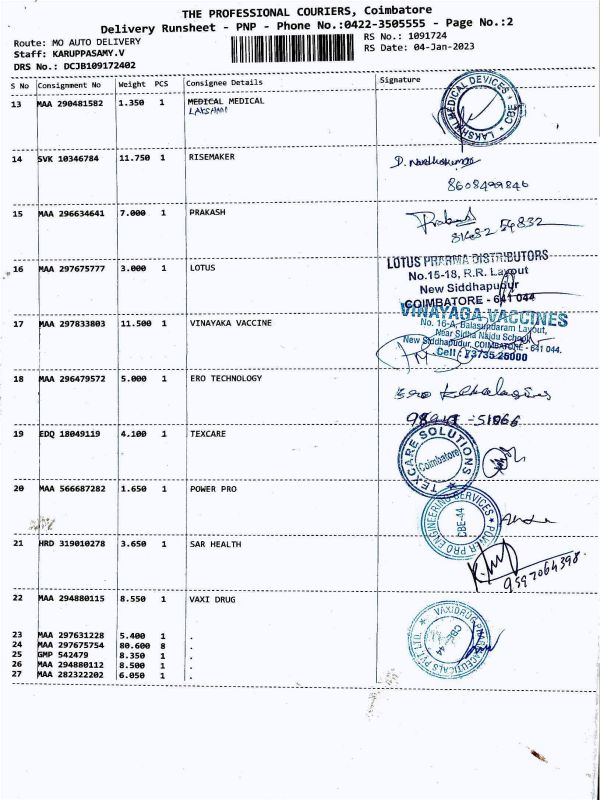 THE PROFESSIONAL COURIERS, Coimbatore
Delivery Runsheet - PNP - Phone No.:0422-3505555 - Page No.:2
Route: MO AUTO DELIVERY
RS No.: 1091724
Staff: KARUPPASAMY.V
RS Date: 04-Jan-2023
DRS No.: DCJB109172402
S No Consignment No Weight PCS Consignee Details Signature
13 MAA 290481582 1.350 1 MEDICAL MEDICAL
LAKSHMI
LAKSHMI MEDICAL DEVICES CBE
14 SVK 10346784 11.750 1 RISEMAKER
D. Nandhakumar
8608499846
15 MAA 296634641 7.000 1 PRAKASH
Prakash
54832
16 MAA 297675777 3.000 1 LOTUS
LOTUS PHARMA DISTRIBUTORS
No.15-18, R.R. Layout
New Siddhapudur
COIMBATORE - 641 044
17 MAA 297833803 11.500 1 VINAYAKA VACCINE
VINAYAGA VACCINES
No. 16-A, Balasundaram Layout,
Near Sidha Naidu School,
New Siddhapudur, COIMBATORE - 641 044.
Cell : 73735 26000
18 MAA 296479572 5.000 1 ERO TECHNOLOGY
19 EDQ 18049119 4.100 1 TEXCARE
TEXCARE SOLUTIONS
Coimbatore
20 MAA 566687282 1.650 1 POWER PRO
POWER PRO ENGINEERING SERVICES
CBE-44
21 HRD 319010278 3.650 1 SAR HEALTH
9597064398.
22 MAA 294880115 8.550 1 VAXI DRUG
VAXIDRUG PHARMACEUTICALS PVT LTD
CBE-44
23 MAA 297631228 5.400 1 .
24 MAA 297675754 80.600 8 .
25 GMP 542479 8.350 1 .
26 MAA 294880112 8.500 1 .
27 MAA 282322202 6.050 1 .